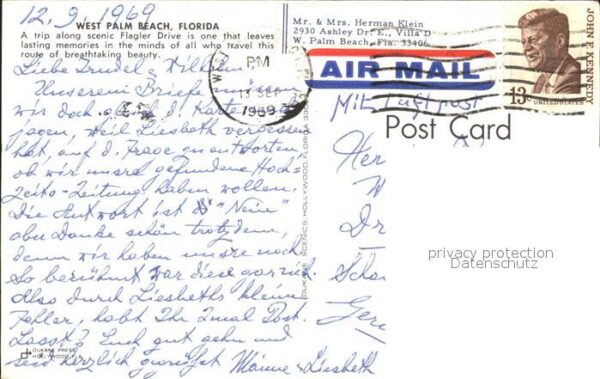 12.9.1969
WEST PALM BEACH, FLORIDA
A trip along scenic Flagler Drive is one that leaves
lasting memories in the minds of all who travel this
route of breathtaking beauty.
Liebe Trudel + Willem!
Unserem Briefe müssen
wir doch gleich d. Karte nach-
jagen, weil Liesbeth vergessen
hat, auf d. Frage zu antworten
ob wir unsre gefundene Hoch-
zeits-Zeitung haben wollen.
Die Antwort ist "Nein"
aber Danke schön trotzdem,
denn wir haben unsre noch.
So berühmt war diese gar nicht.
Also durch Liesbeths kleinen
Fehler, habt Ihr 2mal Post.
Lasst's Euch gut gehn und
seid herzlich gegrüsst Männe + Liesbeth
DUKANE PRESS
HOLLYWOOD, FLA.
DUKANE SCENICS, HOLLYWOOD, FLORIDA
Mr. & Mrs. Herman Klein
2930 Ashley Dr. E., Villa D
W. Palm Beach, Fla. 33406
PM
13 SEP
1969
AIR MAIL
JOHN F. KENNEDY
13c
UNITED STATES
Mit Luftpost
Post Card
Her
W
Dr
privacy protection
Datenschutz
Scha
Ger